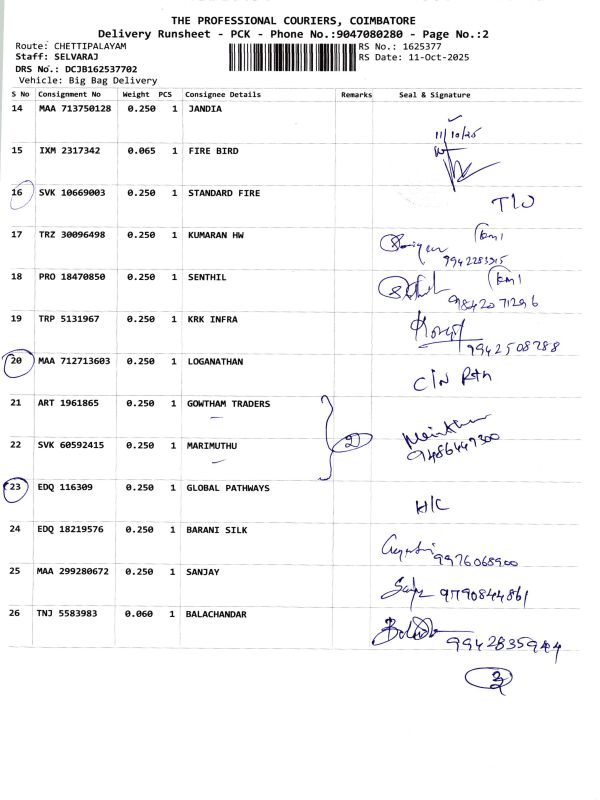 THE PROFESSIONAL COURIERS, COIMBATORE
Delivery Runsheet - PCK - Phone No.:9047080280 - Page No.:2
Route: CHETTIPALAYAM RS No.: 1625377
Staff: SELVARAJ RS Date: 11-Oct-2025
DRS No.: DCJB162537702
Vehicle: Big Bag Delivery
S No Consignment No Weight PCS Consignee Details Remarks Seal & Signature
14 MAA 713750128 0.250 1 JANDIA
11/10/25
15 IXM 2317342 0.065 1 FIRE BIRD
16 SVK 10669003 0.250 1 STANDARD FIRE
17 TRZ 30096498 0.250 1 KUMARAN HW
18 PRO 18470850 0.250 1 SENTHIL
9842071296
19 TRP 5131967 0.250 1 KRK INFRA
9942508788
20 MAA 712713603 0.250 1 LOGANATHAN
21 ART 1961865 0.250 1 GOWTHAM TRADERS
2
22 SVK 60592415 0.250 1 MARIMUTHU
9486449300
23 EDQ 116309 0.250 1 GLOBAL PATHWAYS
H/C
24 EDQ 18219576 0.250 1 BARANI SILK
9976068900
25 MAA 299280672 0.250 1 SANJAY
9790844861
26 TNJ 5583983 0.060 1 BALACHANDAR
3